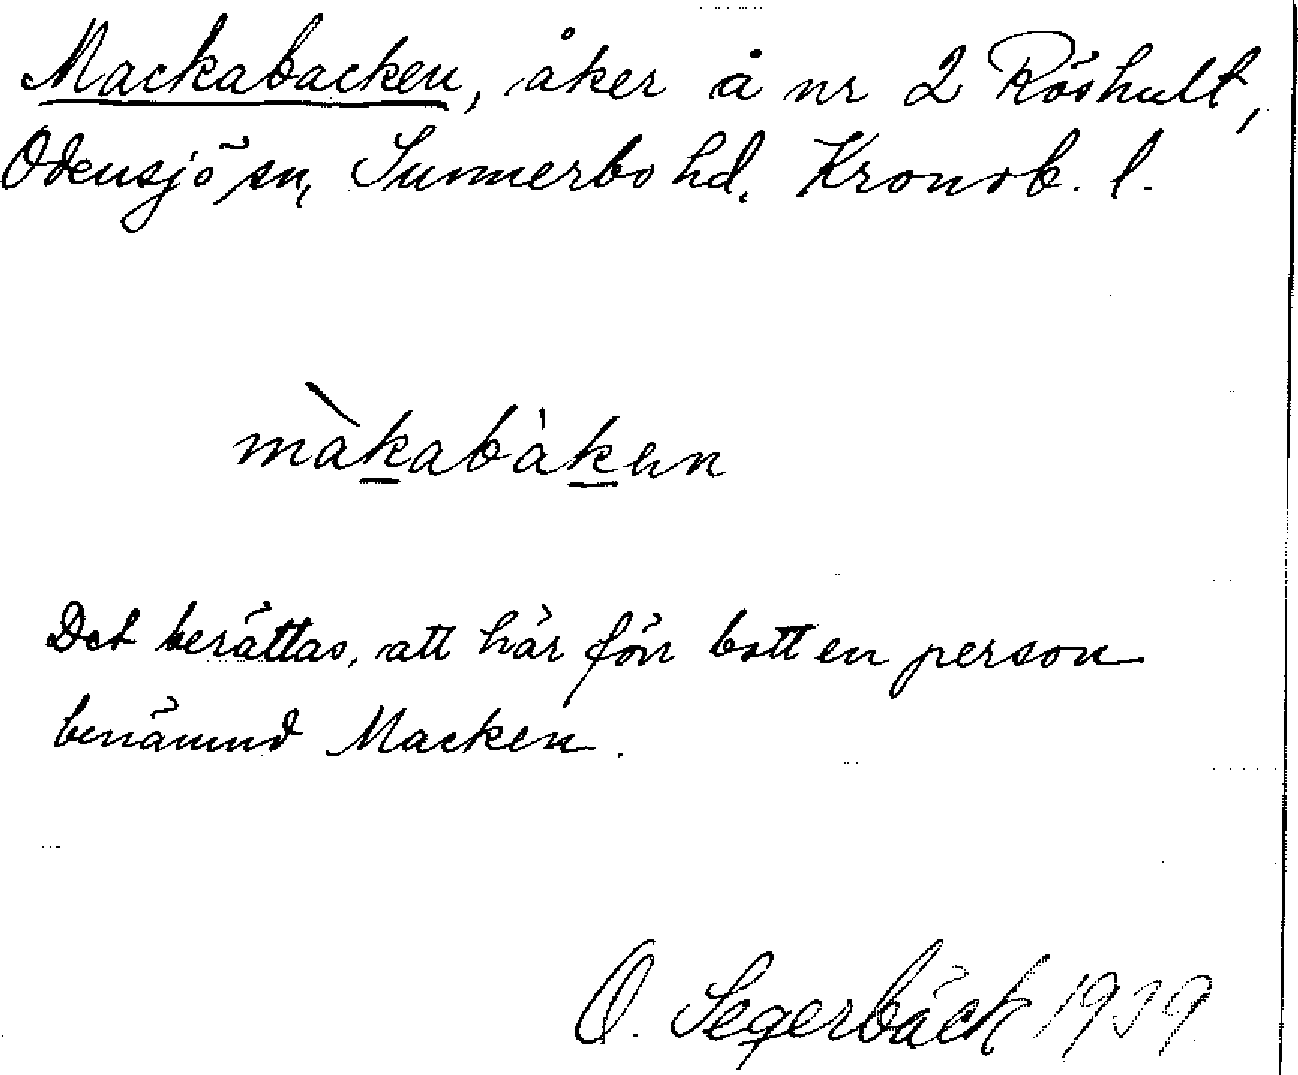 Mackabacken, åker å nr 2 Röshult,
Odensjö sn, Sunnerbo hd. Kronob. l.
màkabàkən
Det berättas, att här förr bott en person
benämnd Macken.
O. Segerbäck 1939